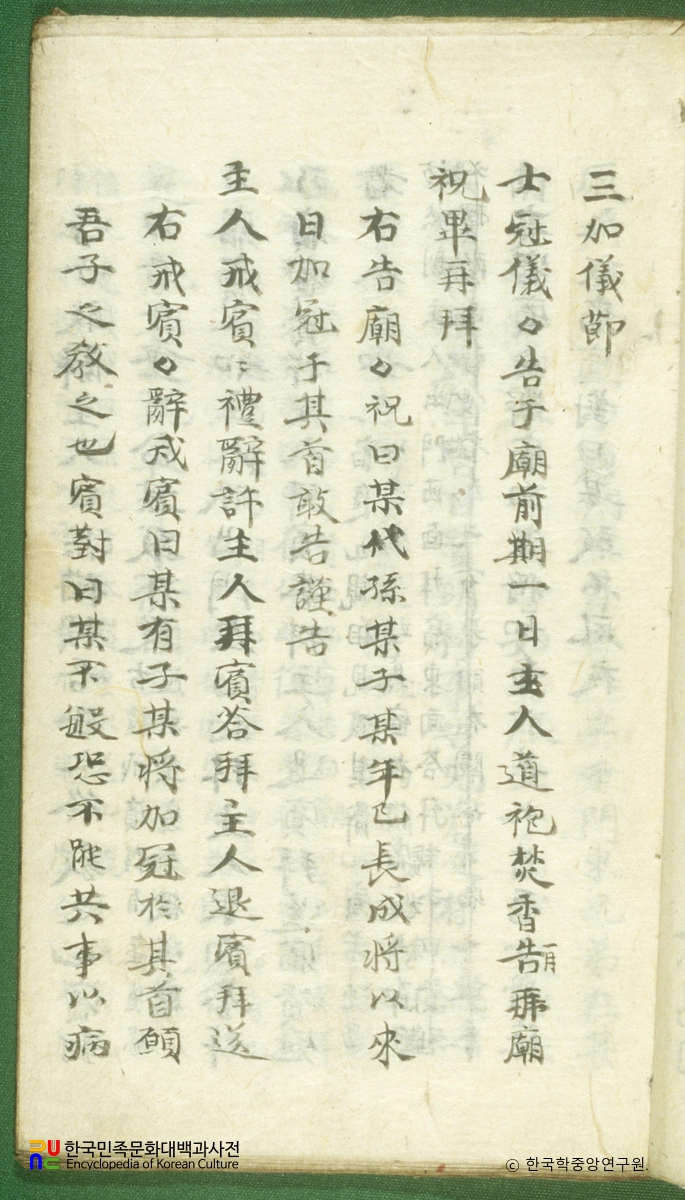 三加儀節
士冠儀々告于廟前期一日主人道袍焚香告廟
祝畢再拜
右告廟々祝曰某代孫某子某年已長成將以來
日加冠于其首敢告謹告
主人戒賓々禮辭許主人拜賓答拜主人退賓拜送
右戒賓々辭戒賓曰某有子某將加冠於其首願
吾子之敎之也賓對曰某不敏恐不能共事以病
한국민족문화대백과사전
Encyclopedia of Korean Culture
© 한국학중앙연구원.